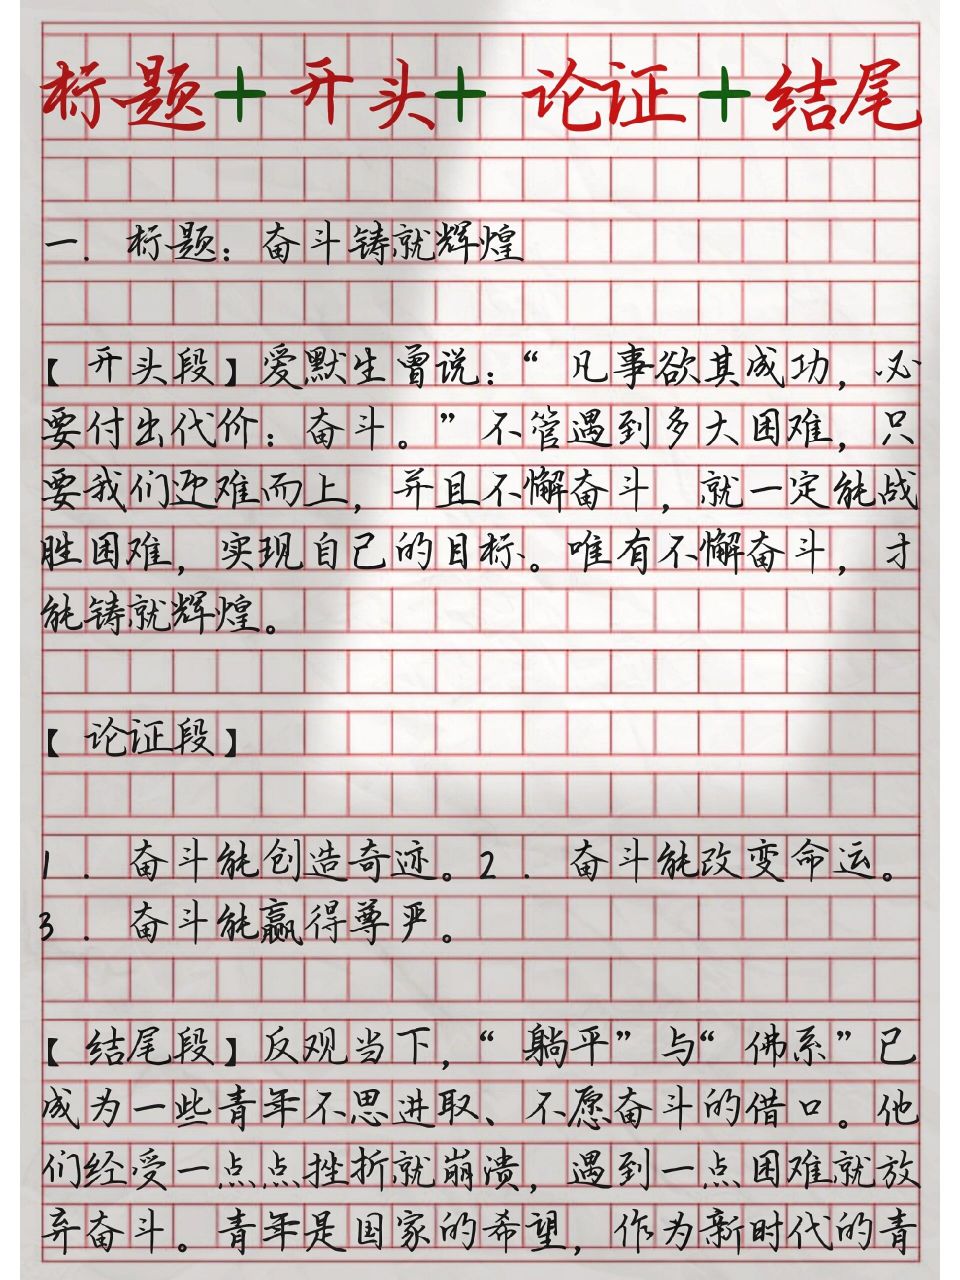 标题+开头+论证+结尾
一. 标题：奋斗铸就辉煌
【开头段】爱默生曾说：“凡事欲其成功，必
要付出代价：奋斗。”不管遇到多大困难，只
要我们迎难而上，并且不懈奋斗，就一定能战
胜困难，实现自己的目标。唯有不懈奋斗，才
能铸就辉煌。
【论证段】
1. 奋斗能创造奇迹。2. 奋斗能改变命运。
3. 奋斗能赢得尊严。
【结尾段】反观当下，“躺平”与“佛系”已
成为一些青年不思进取、不愿奋斗的借口。他
们经受一点点挫折就崩溃，遇到一点困难就放
弃奋斗。青年是国家的希望，作为新时代的青